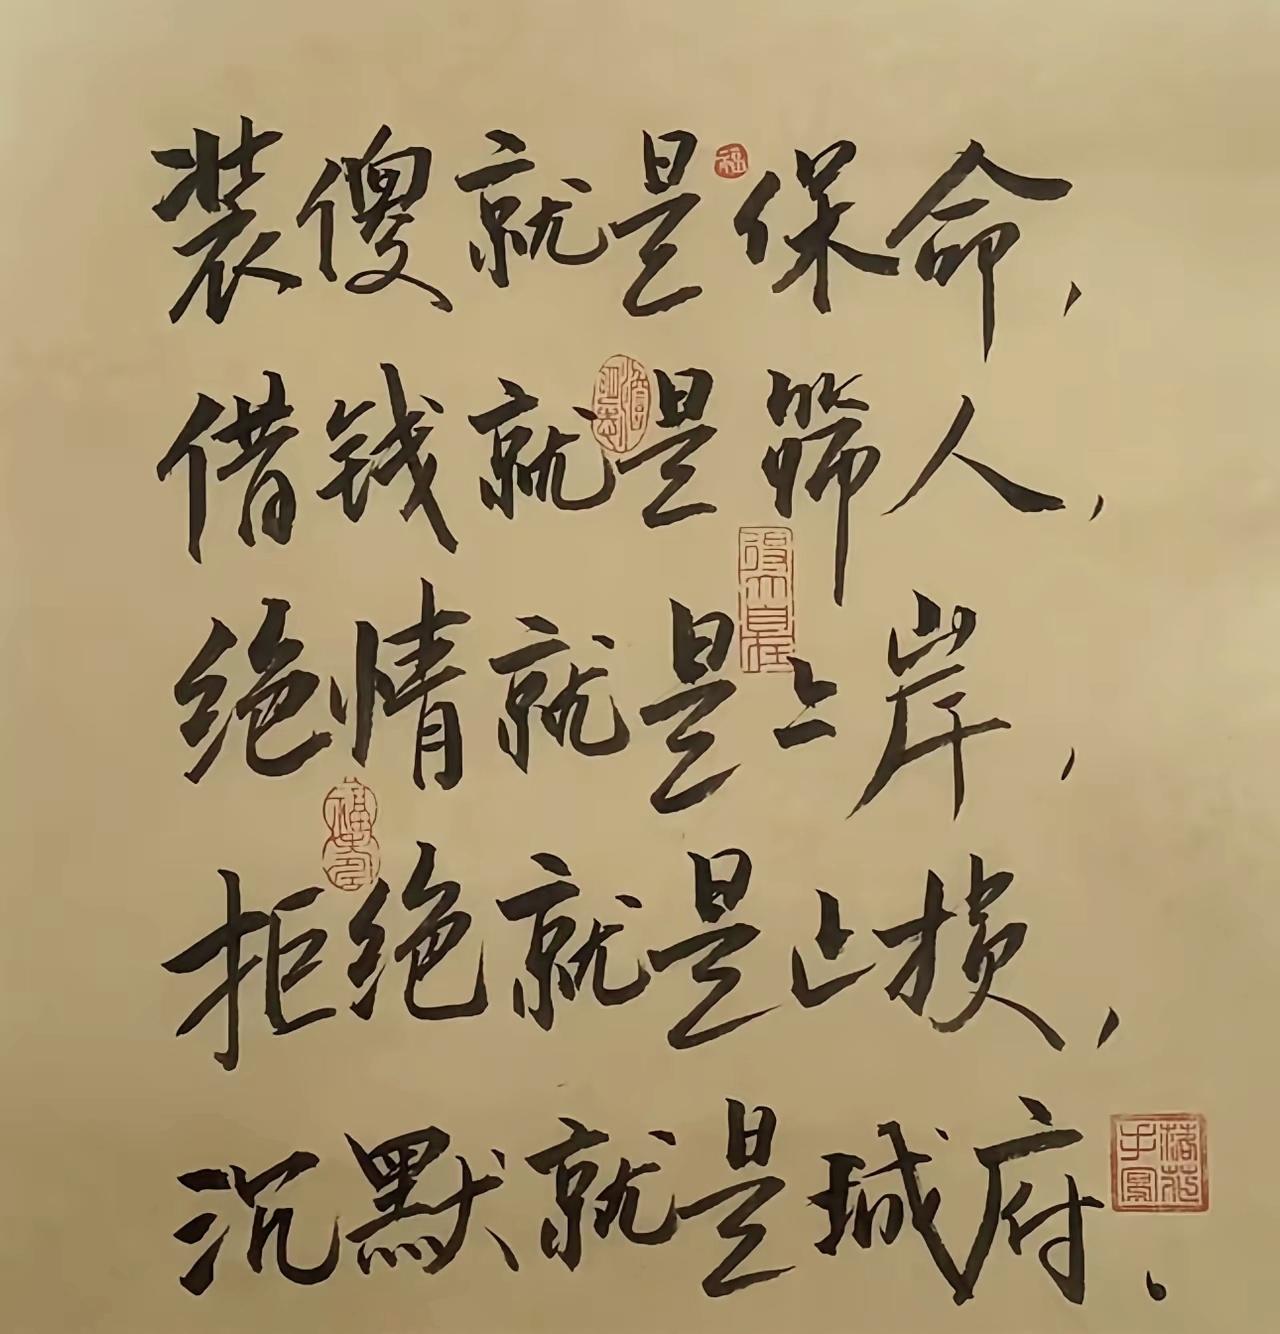 装傻就是保命，
借钱就是筛人，
绝情就是上岸，
拒绝就是止损，
沉默就是城府。